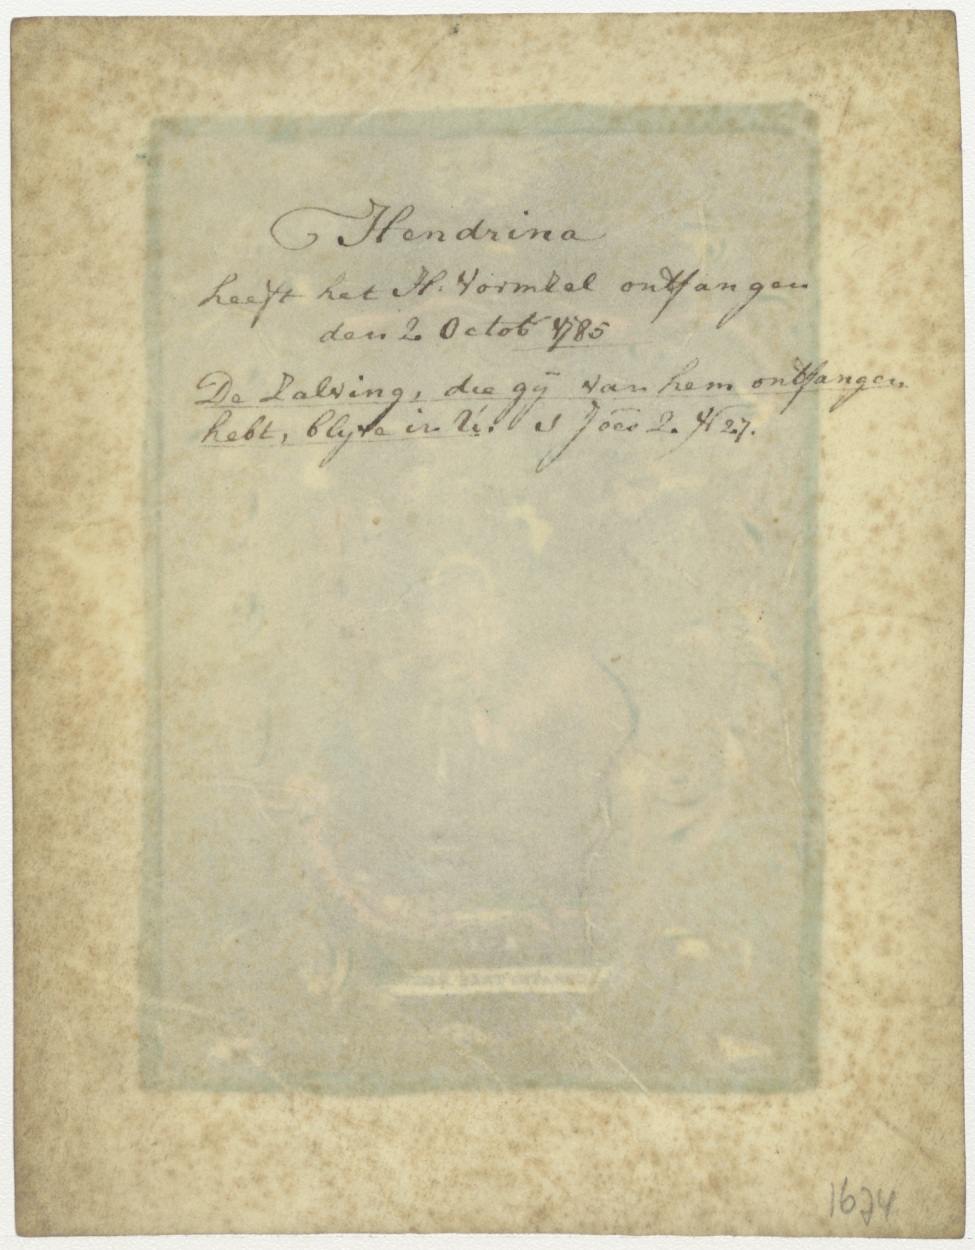 Hendrina
heeft het H. Vormsel ontfangen
den 2 Octob 1785
De Zalving, die gÿ van hem ontfangen
hebt, blyve in U. 1 Joës 2. ℣ 27.
1674